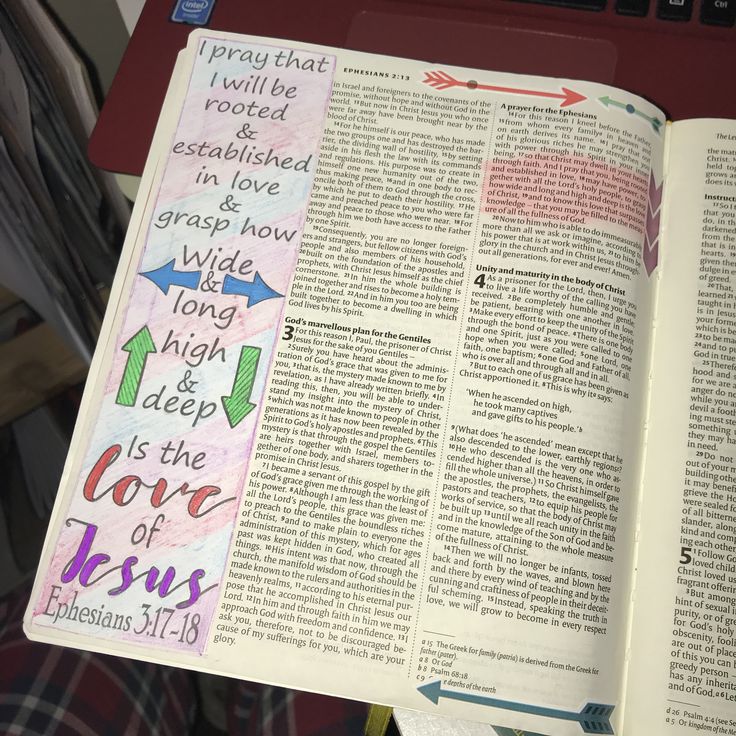 I pray that
I will be
rooted
&
established
in love
&
grasp how
Wide
&
long
high
&
deep
Is the
love
of
Jesus
Ephesians 3:17-18
EPHESIANS 2:13
in Israel and foreigners to the covenants of the
promise, without hope and without God in the
world. 13But now in Christ Jesus you who once
were far away have been brought near by the
blood of Christ.
14For he himself is our peace, who has made
the two groups one and has destroyed the bar-
rier, the dividing wall of hostility, 15by setting
aside in his flesh the law with its commands
and regulations. His purpose was to create in
himself one new humanity out of the two,
thus making peace, 16and in one body to rec-
oncile both of them to God through the cross,
by which he put to death their hostility. 17He
came and preached peace to you who were far
away and peace to those who were near. 18For
through him we both have access to the Father
by one Spirit.
19Consequently, you are no longer foreign-
ers and strangers, but fellow citizens with God's
people and also members of his household,
20built on the foundation of the apostles and
prophets, with Christ Jesus himself as the chief
cornerstone. 21In him the whole building is
joined together and rises to become a holy tem-
ple in the Lord. 22And in him you too are being
built together to become a dwelling in which
God lives by his Spirit.
God's marvellous plan for the Gentiles
3 For this reason I, Paul, the prisoner of Christ
Jesus for the sake of you Gentiles –
2Surely you have heard about the adminis-
tration of God's grace that was given to me for
you, 3that is, the mystery made known to me by
revelation, as I have already written briefly. 4In
reading this, then, you will be able to under-
stand my insight into the mystery of Christ,
5which was not made known to people in other
generations as it has now been revealed by the
Spirit to God's holy apostles and prophets. 6This
mystery is that through the gospel the Gentiles
are heirs together with Israel, members to-
gether of one body, and sharers together in the
promise in Christ Jesus.
7I became a servant of this gospel by the gift
of God's grace given me through the working of
his power. 8Although I am less than the least of
all the Lord's people, this grace was given me:
to preach to the Gentiles the boundless riches
of Christ, 9and to make plain to everyone the
administration of this mystery, which for ages
past was kept hidden in God, who created all
things. 10His intent was that now, through the
church, the manifold wisdom of God should be
made known to the rulers and authorities in the
heavenly realms, 11according to his eternal pur-
pose that he accomplished in Christ Jesus our
Lord. 12In him and through faith in him we may
approach God with freedom and confidence. 13I
ask you, therefore, not to be discouraged be-
cause of my sufferings for you, which are your
glory.
A prayer for the Ephesians
14For this reason I kneel before the Father,
15from whom every family a in heaven and
on earth derives its name. 16I pray that out
of his glorious riches he may strengthen you
with power through his Spirit in your inner
being, 17so that Christ may dwell in your hearts
through faith. And I pray that you, being rooted
and established in love, 18may have power, to-
gether with all the Lord's holy people, to grasp
how wide and long and high and deep is the love
of Christ, 19and to know this love that surpasses
knowledge – that you may be filled to the meas-
ure of all the fullness of God.
20Now to him who is able to do immeasurably
more than all we ask or imagine, according to
his power that is at work within us, 21to him be
glory in the church and in Christ Jesus through-
out all generations, for ever and ever! Amen.
Unity and maturity in the body of Christ
4 As a prisoner for the Lord, then, I urge you
to live a life worthy of the calling you have
received. 2Be completely humble and gentle;
be patient, bearing with one another in love.
3Make every effort to keep the unity of the Spirit
through the bond of peace. 4There is one body
and one Spirit, just as you were called to one
hope when you were called; 5one Lord, one
faith, one baptism; 6one God and Father of all,
who is over all and through all and in all.
7But to each one of us grace has been given as
Christ apportioned it. 8This is why it a says:
'When he ascended on high,
he took many captives
and gave gifts to his people.' b
9(What does 'he ascended' mean except that he
also descended to the lower, earthly regions? c
10He who descended is the very one who as-
cended higher than all the heavens, in order to
fill the whole universe.) 11So Christ himself gave
the apostles, the prophets, the evangelists, the
pastors and teachers, 12to equip his people for
works of service, so that the body of Christ may
be built up 13until we all reach unity in the faith
and in the knowledge of the Son of God and be-
come mature, attaining to the whole measure
of the fullness of Christ.
14Then we will no longer be infants, tossed
back and forth by the waves, and blown here
and there by every wind of teaching and by the
cunning and craftiness of people in their deceit-
ful scheming. 15Instead, speaking the truth in
love, we will grow to become in every respect
a 15 The Greek for family (patria) is derived from the Greek for
father (pater).
a 8 Or God
b 8 Psalm 68:18
c 9 depths of the earth
intel
Ctrl